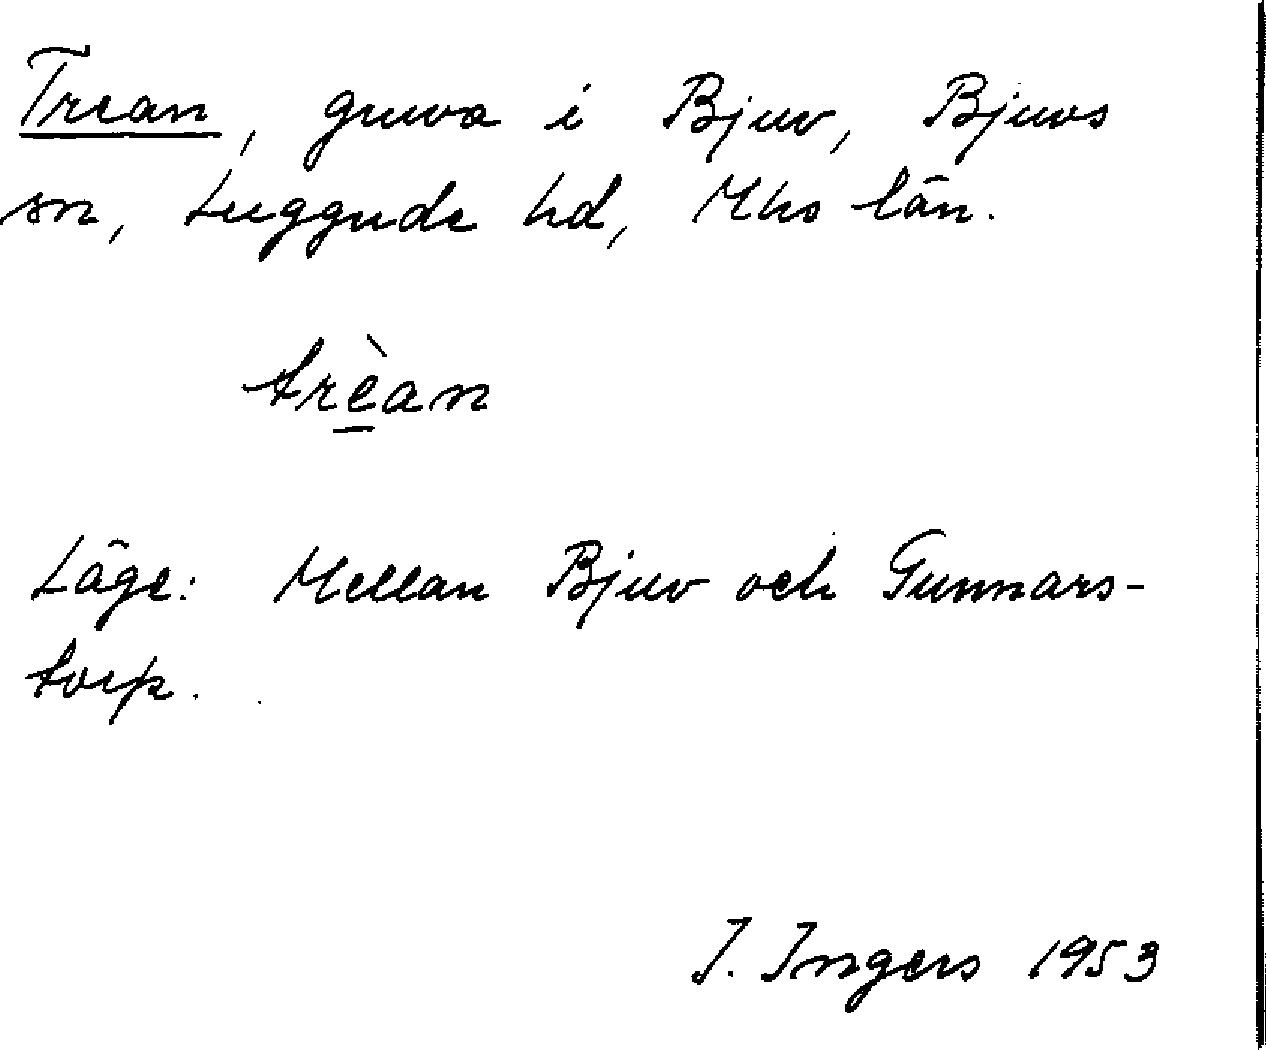 Trean, gruva i Bjuv, Bjuvs
sn, Luggude hd, Mhs län.
trè̱an
Läge: Mellan Bjuv och Gunnars-
torp.
I. Ingers 1953